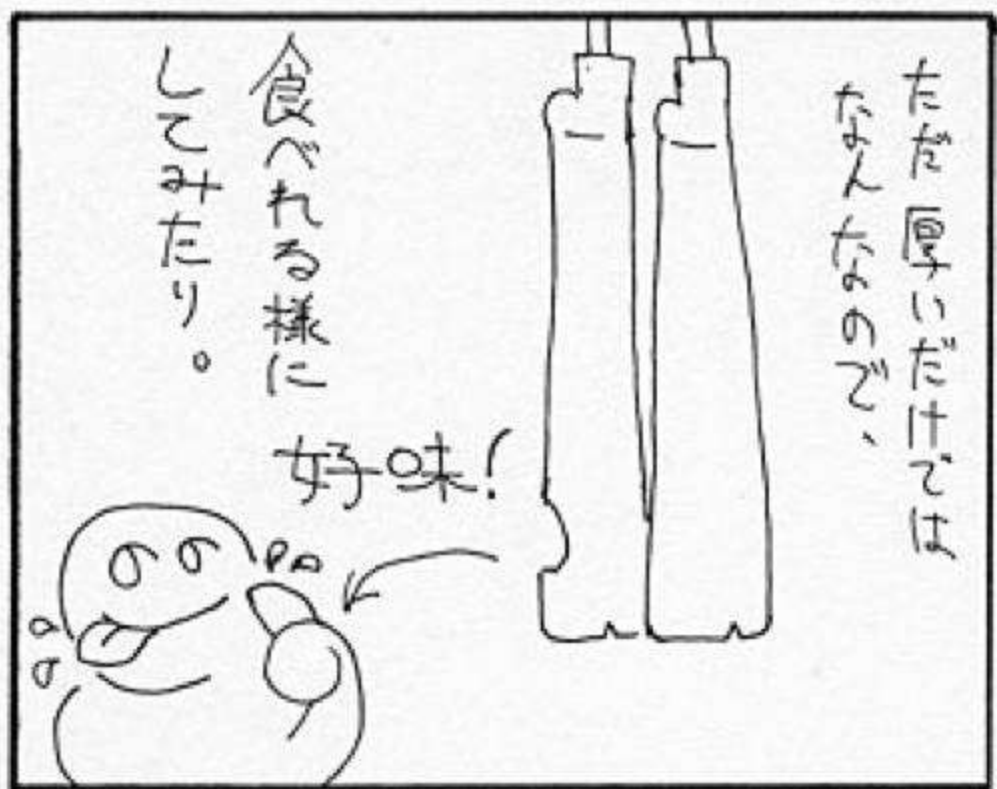 ただ厚いだけでは
なんなので、
食べれる様に
してみたり。
好味!